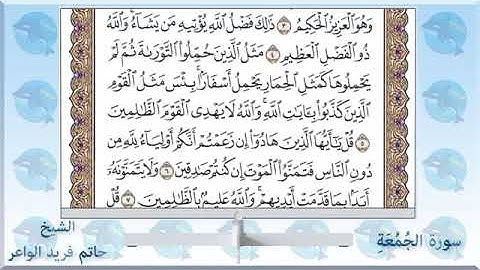 وَهُوَ ٱلْعَزِيزُ ٱلْحَكِيمُ ٣ ذَٰلِكَ فَضْلُ ٱللَّهِ يُؤْتِيهِ مَن يَشَآءُ ۚ وَٱللَّهُ
ذُو ٱلْفَضْلِ ٱلْعَظِيمِ ٤ مَثَلُ ٱلَّذِينَ حُمِّلُوا۟ ٱلتَّوْرَىٰةَ ثُمَّ لَمْ
يَحْمِلُوهَا كَمَثَلِ ٱلْحِمَارِ يَحْمِلُ أَسْفَارًۢا ۚ بِئْسَ مَثَلُ ٱلْقَوْمِ
ٱلَّذِينَ كَذَّبُوا۟ بِـَٔايَٰتِ ٱللَّهِ ۚ وَٱللَّهُ لَا يَهْدِى ٱلْقَوْمَ ٱلظَّٰلِمِينَ
٥ قُلْ يَٰٓأَيُّهَا ٱلَّذِينَ هَادُوٓا۟ إِن زَعَمْتُمْ أَنَّكُمْ أَوْلِيَآءُ لِلَّهِ مِن
دُونِ ٱلنَّاسِ فَتَمَنَّوُا۟ ٱلْمَوْتَ إِن كُنتُمْ صَٰدِقِينَ ٦ وَلَا يَتَمَنَّوْنَهُۥٓ
أَبَدًۢا بِمَا قَدَّمَتْ أَيْدِيهِمْ ۚ وَٱللَّهُ عَلِيمٌۢ بِٱلظَّٰلِمِينَ ٧ قُلْ
سورة الجُمُعَةِ
الشيخ
حاتم فريد الواعر